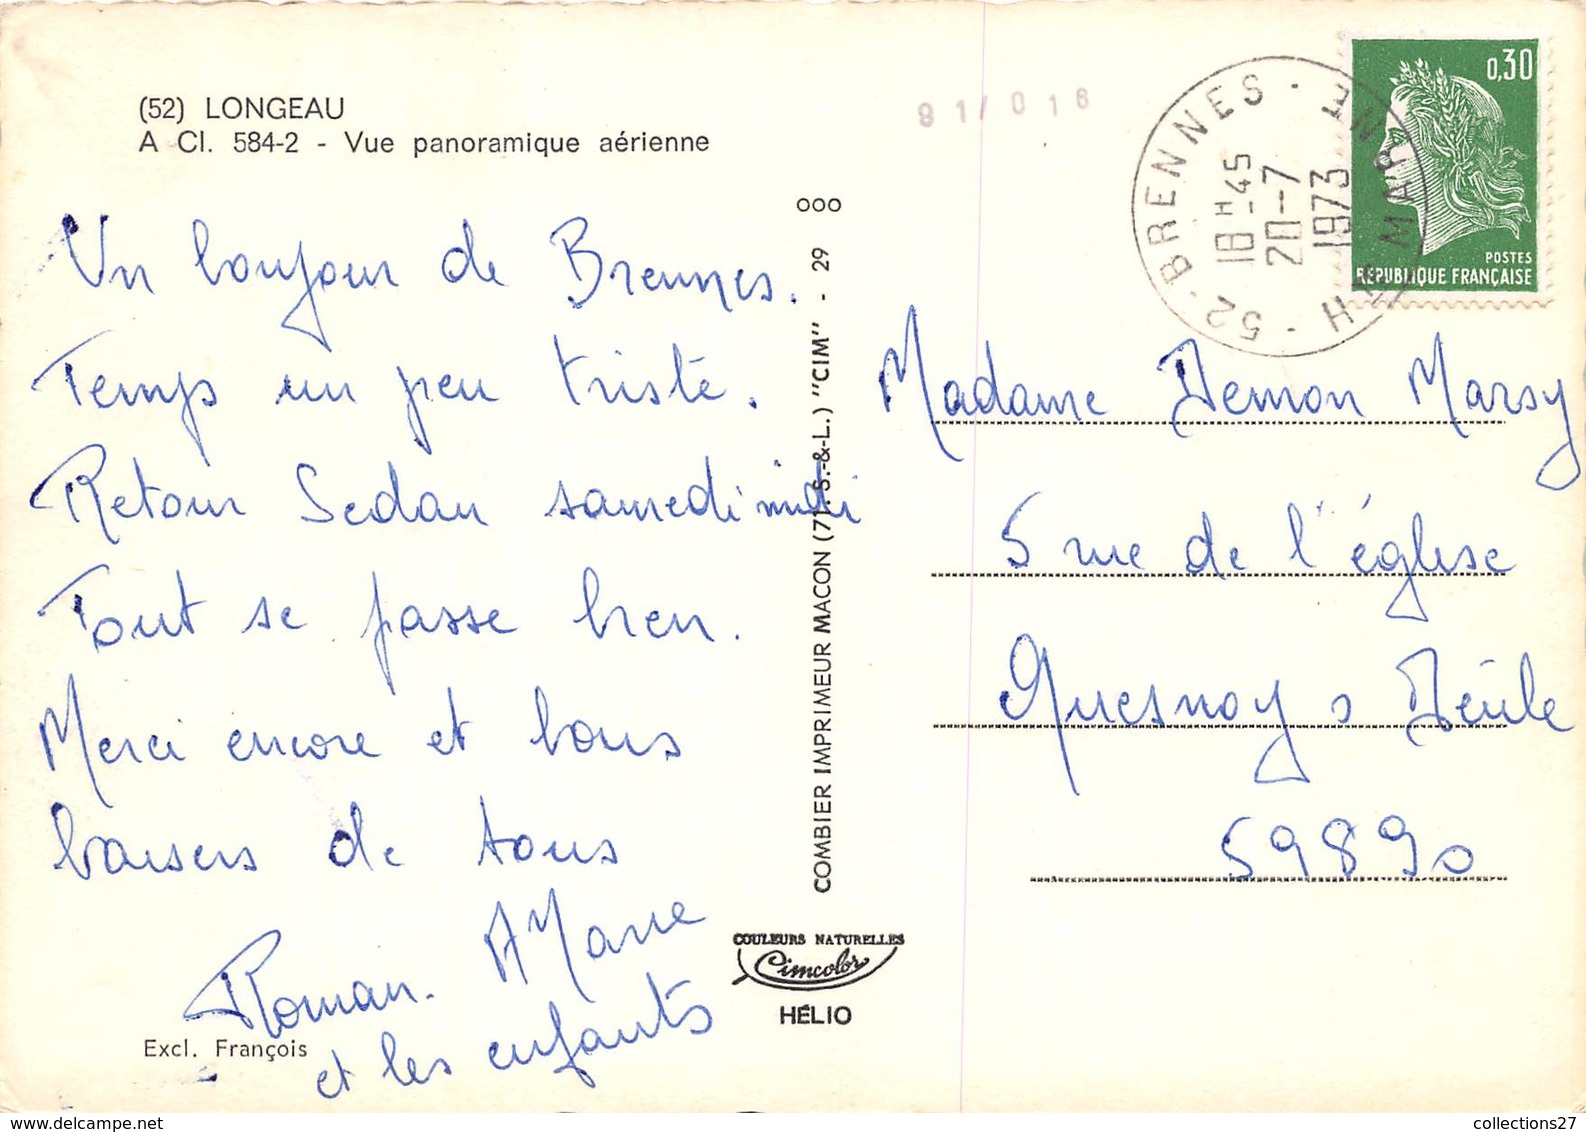 (52) LONGEAU
A Cl. 584-2 - Vue panoramique aérienne
Un bonjour de Brennes.
Temps un peu triste.
Retour Sedan samedi midi
Tout se passe bien.
Merci encore et bons
baisers de tous
Roman. AMarie
et les enfants
Excl. François
ooo
COMBIER IMPRIMEUR MACON (71. S.-&-L.) "CIM" - 29
COULEURS NATURELLES
Cimcolor
HÉLIO
91/016
52 · BRENNES · HTE MARNE
18H-45
20-7
1973
0,30
POSTES
REPUBLIQUE FRANÇAISE
Madame Demon Marsy
5 rue de l'église
Quesnoy s Deûle
59890
collections27